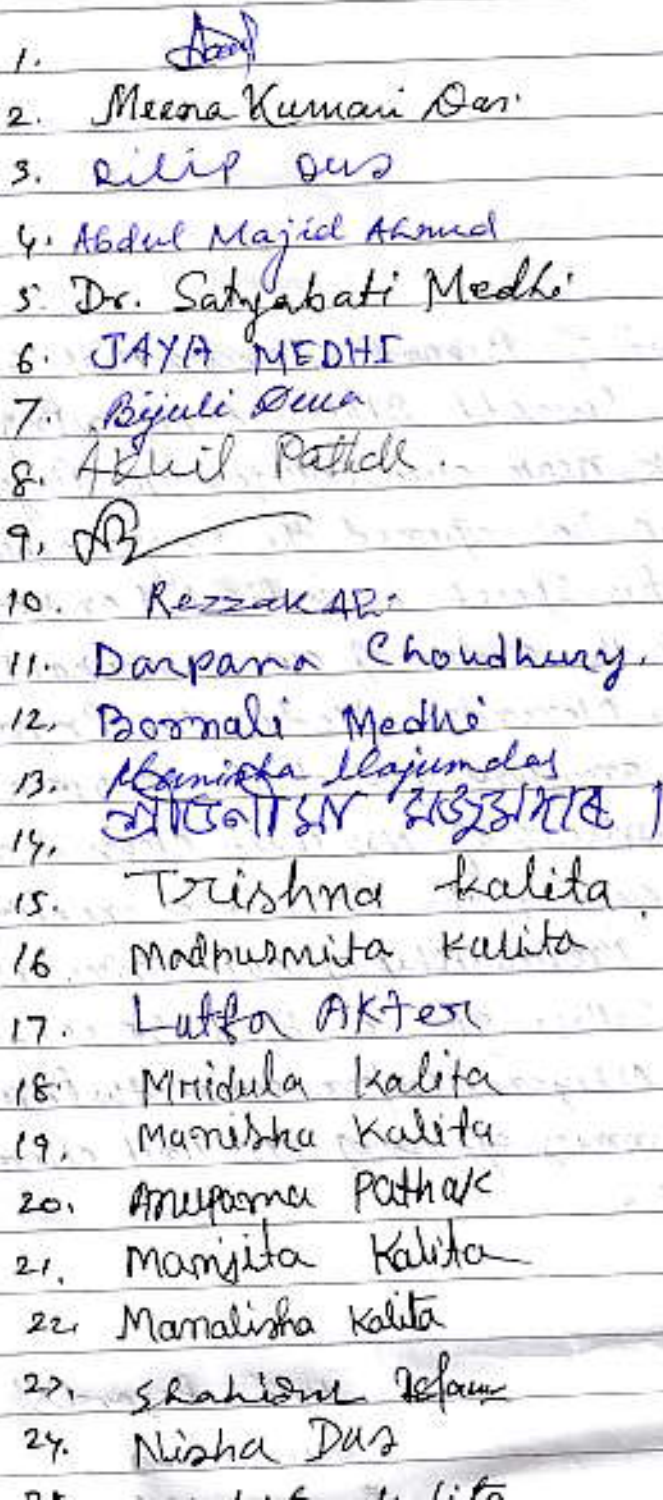 1.
2. Meena Kumari Das.
3. Dilip Das
4. Abdul Majid Ahmed
5. Dr. Satyabati Medhi
6. JAYA MEDHI
7. Bijuli Deka
8. Akhil Pathak.
9.
10. Rezzak Ali
11. Darpana Choudhury.
12. Bornali Medhi
13. Manisha Majumdar
14. মজুমদাৰ।
15. Trishna Kalita
16 Madhusmita Kalita
17. Lutfa AKter
18. Mridula Kalita
19. Manishka Kalita
20. Anupama Pathak
21. Mamjita Kalita
22. Manalisha Kalita
23. Shahidul Islam
24. Nisha Das